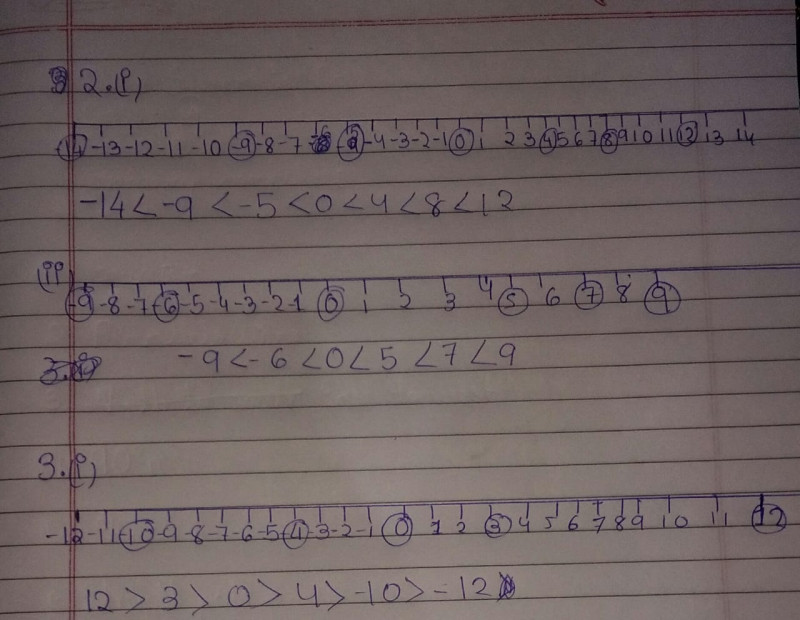 2.(i)
-14 -13 -12 -11 -10 -9 -8 -7 -6 -5 -4 -3 -2 -1 0 1 2 3 4 5 6 7 8 9 10 11 12 13 14
-14 < -9 < -5 < 0 < 4 < 8 < 12
(ii)
-9 -8 -7 -6 -5 -4 -3 -2 -1 0 1 2 3 4 5 6 7 8 9
-9 < -6 < 0 < 5 < 7 < 9
3.(i)
-12 -11 -10 -9 -8 -7 -6 -5 -4 -3 -2 -1 0 1 2 3 4 5 6 7 8 9 10 11 12
12 > 3 > 0 > 4 > -10 > -12